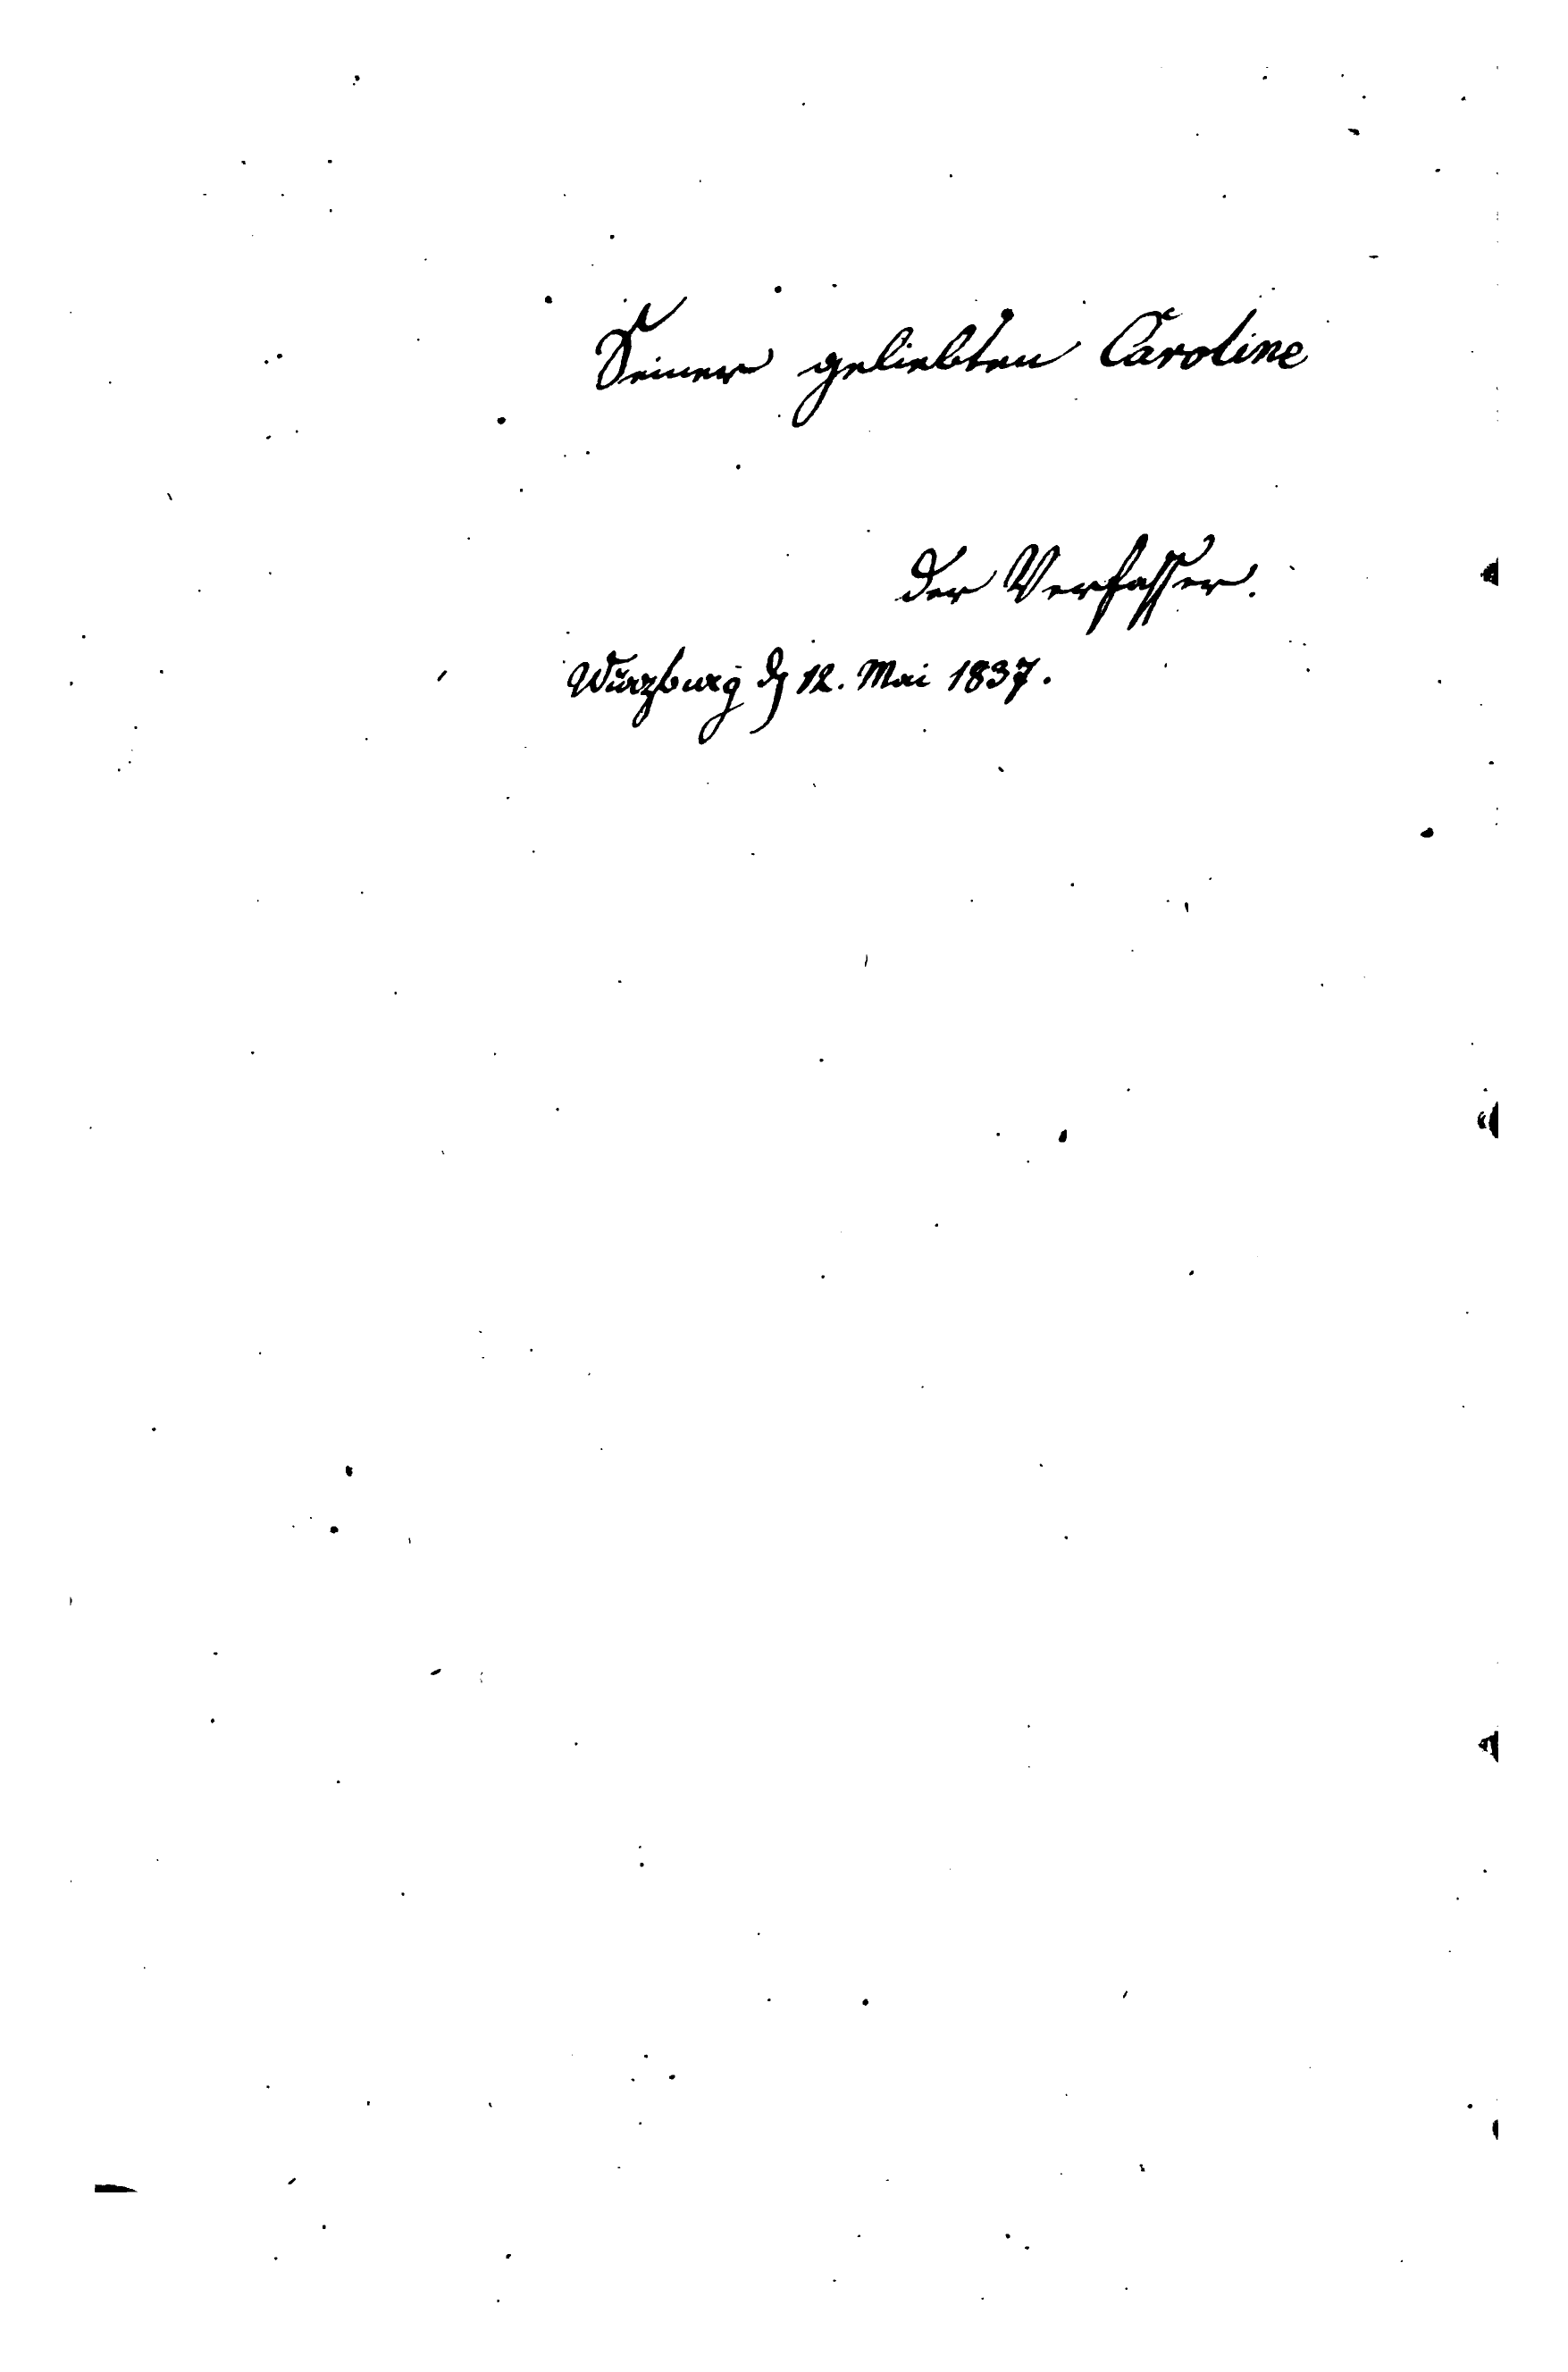 Seiner geliebten Caroline
der Verfasser.
Würzburg d 12. Mai 1837.